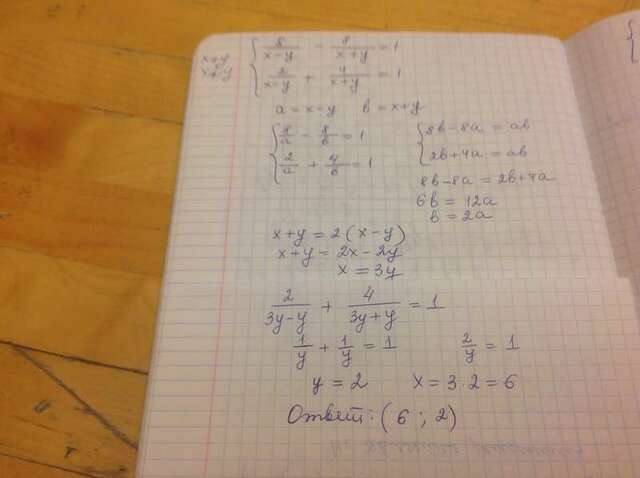 x≠y
x≠-y
{ 8/(x-y) - 8/(x+y) = 1
2/(x-y) + 4/(x+y) = 1
a = x-y b = x+y
{ 8/a - 8/b = 1
2/a + 4/b = 1
{ 8b-8a = ab
2b+4a = ab
8b-8a = 2b+4a
6b = 12a
b = 2a
x+y = 2(x-y)
x+y = 2x-2y
x = 3y
2/(3y-y) + 4/(3y+y) = 1
1/y + 1/y = 1 2/y = 1
y = 2 x = 3·2 = 6
Ответ: (6 ; 2)